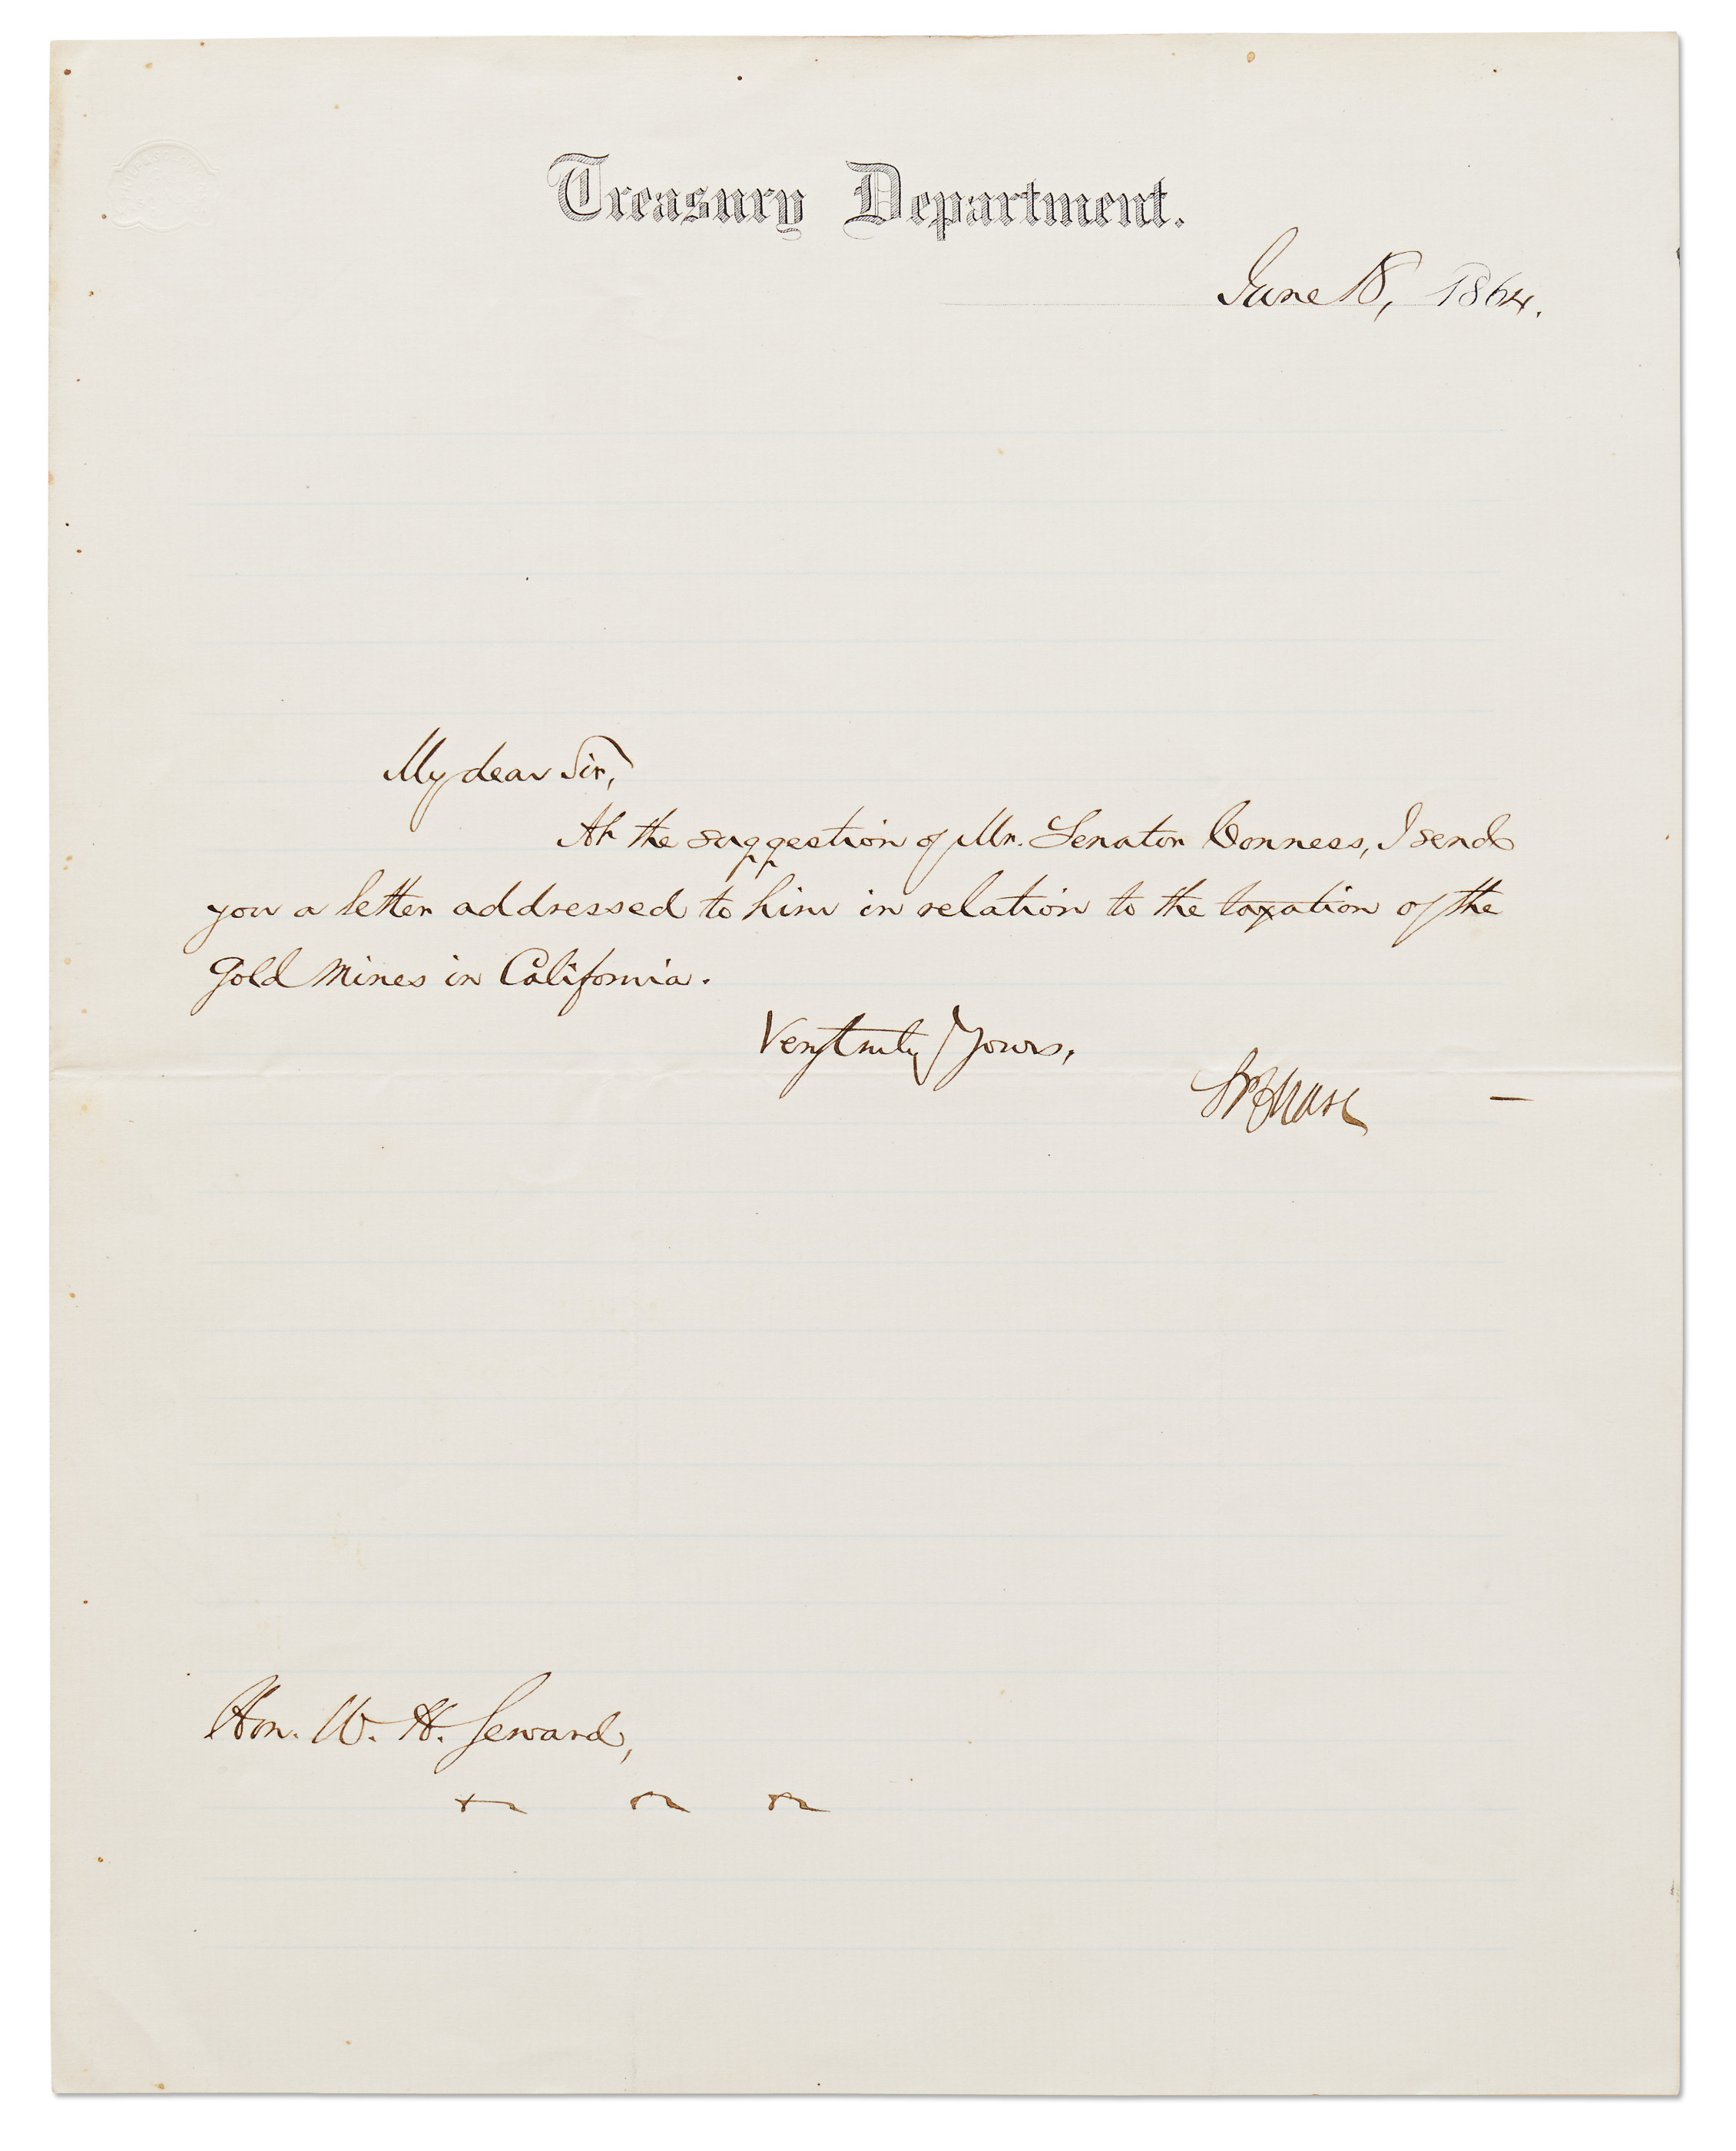 Treasury Department.
June 18, 1864.
My dear Sir,
At the suggestion of Mr. Senator Conness, I send
you a letter addressed to him in relation to the taxation of the
Gold Mines in California.
Very truly Yours,
SPChase
Hon. W. H. Seward,